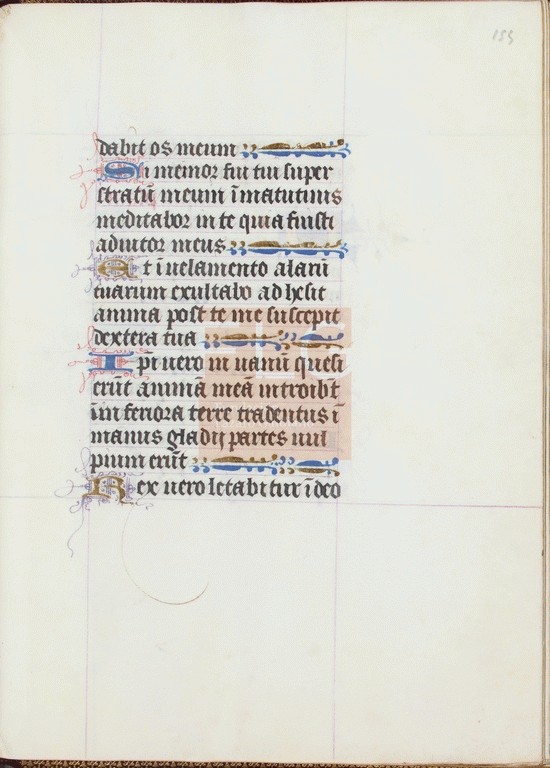 189
dabit os meum
Si memor fui tui super
stratū meum ī matutinis
meditabor in te quia fuisti
adiutor meus
Et ī uelamento alarū
tuarum exultabo adhesit
anima post te me suscepit
dextera tua
Ipi uero in uanū quesi
erūt animā meā introibt̄
in inferiora terre tradentur ī
manus gladij partes uul
pium erūt
Rex uero letabitur ī deo